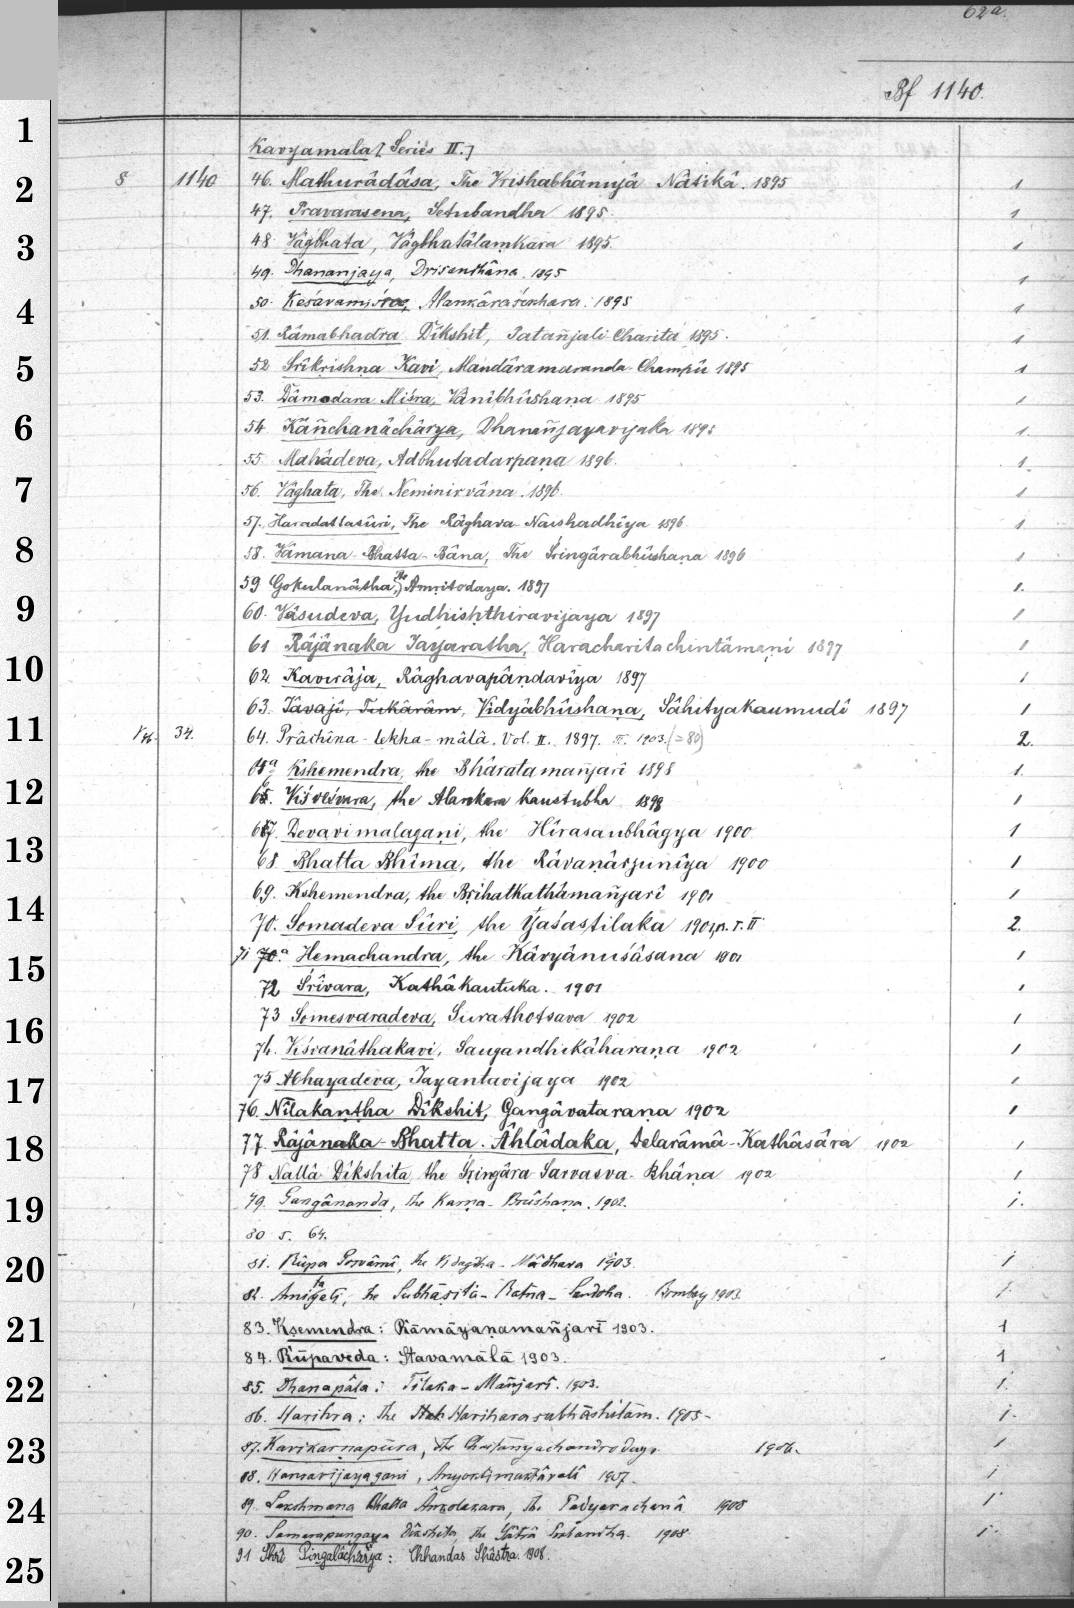 62a.
Bf 1140.
1
Kavyamala [Series II.]
2 8 1140 46. Mathurâdâsa, The Vrishabhânujâ Nâtikâ. 1895 1
47. Pravarasena, Setubandha 1895. 1
3 48 Vâgbhata, Vâgbhatâlaṃkara 1895. 1
49. Dhananjaya, 1895 1
4 50. Keśavamiśra, Alankâraśekhara. 1895 1
51. Râmabhadra Dîkshit, Patañjali Charita 1895. 1
5 52 Srîkrishṇa Kavi, Mandâramaranda-Champû 1895 1
53. Dâmodara Miśra, Vânîbhûshaṇa 1895 1
6 54. Kâñchanâchârya, Dhanañjayavijaka 1895 1.
55. Mahâdeva, Adbhutadarpaṇa 1896. 1.
7 56. Vâghata, The Neminirvâna. 1896. 1
57. Haradattasûri, The Râghava Naishadhîya 1896 1
8 58. Vâmana-Bhatta-Bâna, The Śringârabhûshaṇa 1896 1
59 Gokulanâtha, the Amṛitodaya. 1897 1.
9 60. Vâsudeva, Yudhishṭhiravijaya 1897 1
61 Râjânaka Jayaratha, Haracharitachintâmaṇi 1897 1
10 62. Kavirâja, Râghavapâṇdavîya 1897 1
63. Jâvajî, Tukârâm, Vidyâbhûshaṇa, Sâhityakaumudî 1897 1
11 34. 64. Prâchîna-lekha-mâlâ. Vol. II. 1897. III. 1903. (=80) 2.
65a Kshemendra, the Bhâratamañjarî 1898 1.
12 66. Viśveśvara, the Alankara Kaustubha 1898 1
67. Devavimalagaṇi, the Hîrasaubhâgya 1900 1
13 68. Bhatta Bhîma, the Râvaṇârjunîya 1900 1
69. Kshemendra, the Bṛihatkathâmañjarî 1901 1
14 70. Somadeva Sûri, the Yaśastilaka 1901, II 2.
71 70.a Hemachandra, the Kâvyânuśâsana 1901 1
15 72 Śrîvara, Kathâkautuka. 1901 1
73 Someśvaradeva, Surathotsava 1902 1
16 74. Viśvanâthakavi, Saugandhikâharaṇa 1902 1
75 Abhayadeva, Jayantavijaya 1902 1
17 76. Nîlakaṇṭha Dîkshit, Gangâvataraṇa 1902 1
18 77. Râjânaka-Bhatta. Âhlâdaka, Delarâmâ-Kathâsâra 1902 1
78 Nallâ Dîkshita the Śṛingâra Sarvasva-Bhâṇa 1902 1
19 79. Gangânanda, the Karṇa-Bhûshaṇa. 1902. 1.
80 s. 64.
20 81. Rûpa Gosvâmî, the Vidagdha-Mâdhava 1903 1
82. Amitagati, the Subhâṣita-Ratna-Sandoha. Bombay 1903 1.
21 83. Kṣemendra: Râmâyaṇamañjarî 1903. 1
84. Rûpaveda: Stavamâlâ 1903. 1
22 85. Dhanapâla: Tilaka-Mañjarî. 1903. 1.
86. Harihra: the Hariharasubhâshitam. 1905- 1.
23 87. Kavikarṇapûra, the 1906. 1
88. Hansavijayagani, Anyoktimuktâvalî 1907. 1
24 89. Lakshmana Bhatta the Padyarachanâ 1908 1
90. Samarapungava Dîkshita, the 1908. 1.
25 91 Shrî Pingalâchârya: Chhandas Shâstra. 1908.